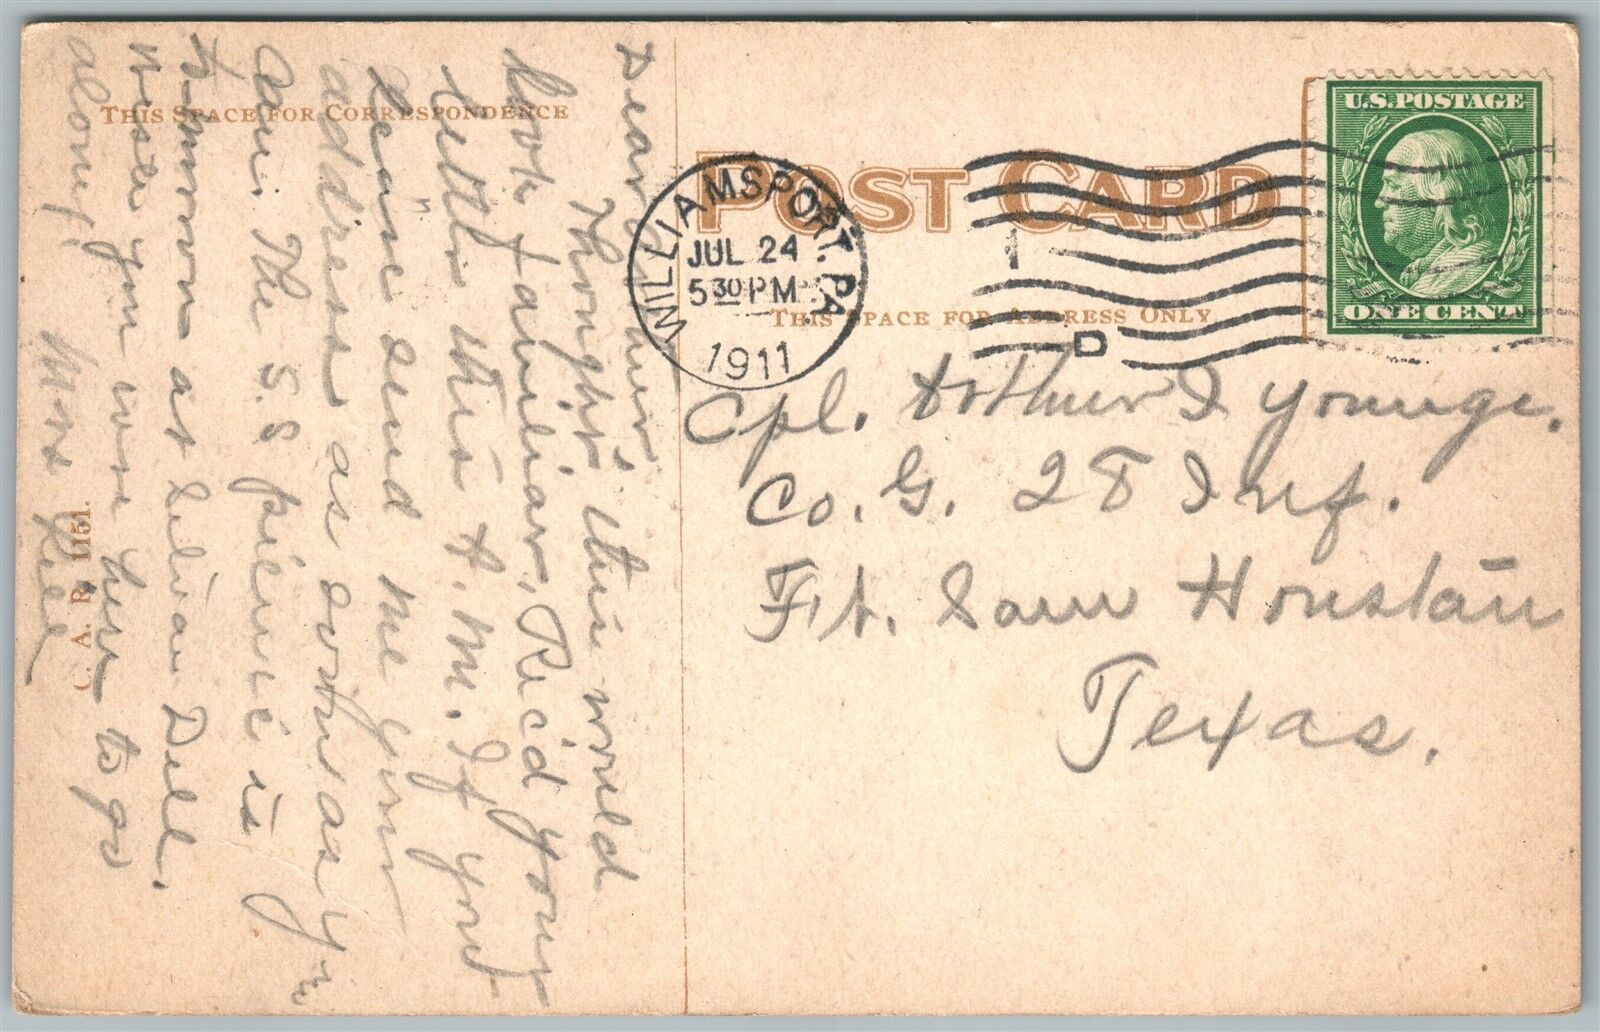 THIS SPACE FOR CORRESPONDENCE
POST CARD
U.S. POSTAGE
ONE CENT
WILLIAMSPORT, PA.
JUL 24
5 30 PM
1911
1
D
THIS SPACE FOR ADDRESS ONLY
Cpl. Arthur I Younge.
Co. G. 28 Inf.
Ft. Sam Houstan
Texas.
Dear
Thought this would
look familiar, Rec'd your
letter this A.M. If you
leave send me your
address as soon as you
can. The S.S picnic is
tomorrow at Sylvan Dell.
Wish you were here to go
along.
Miss
C. A. R. 1151.